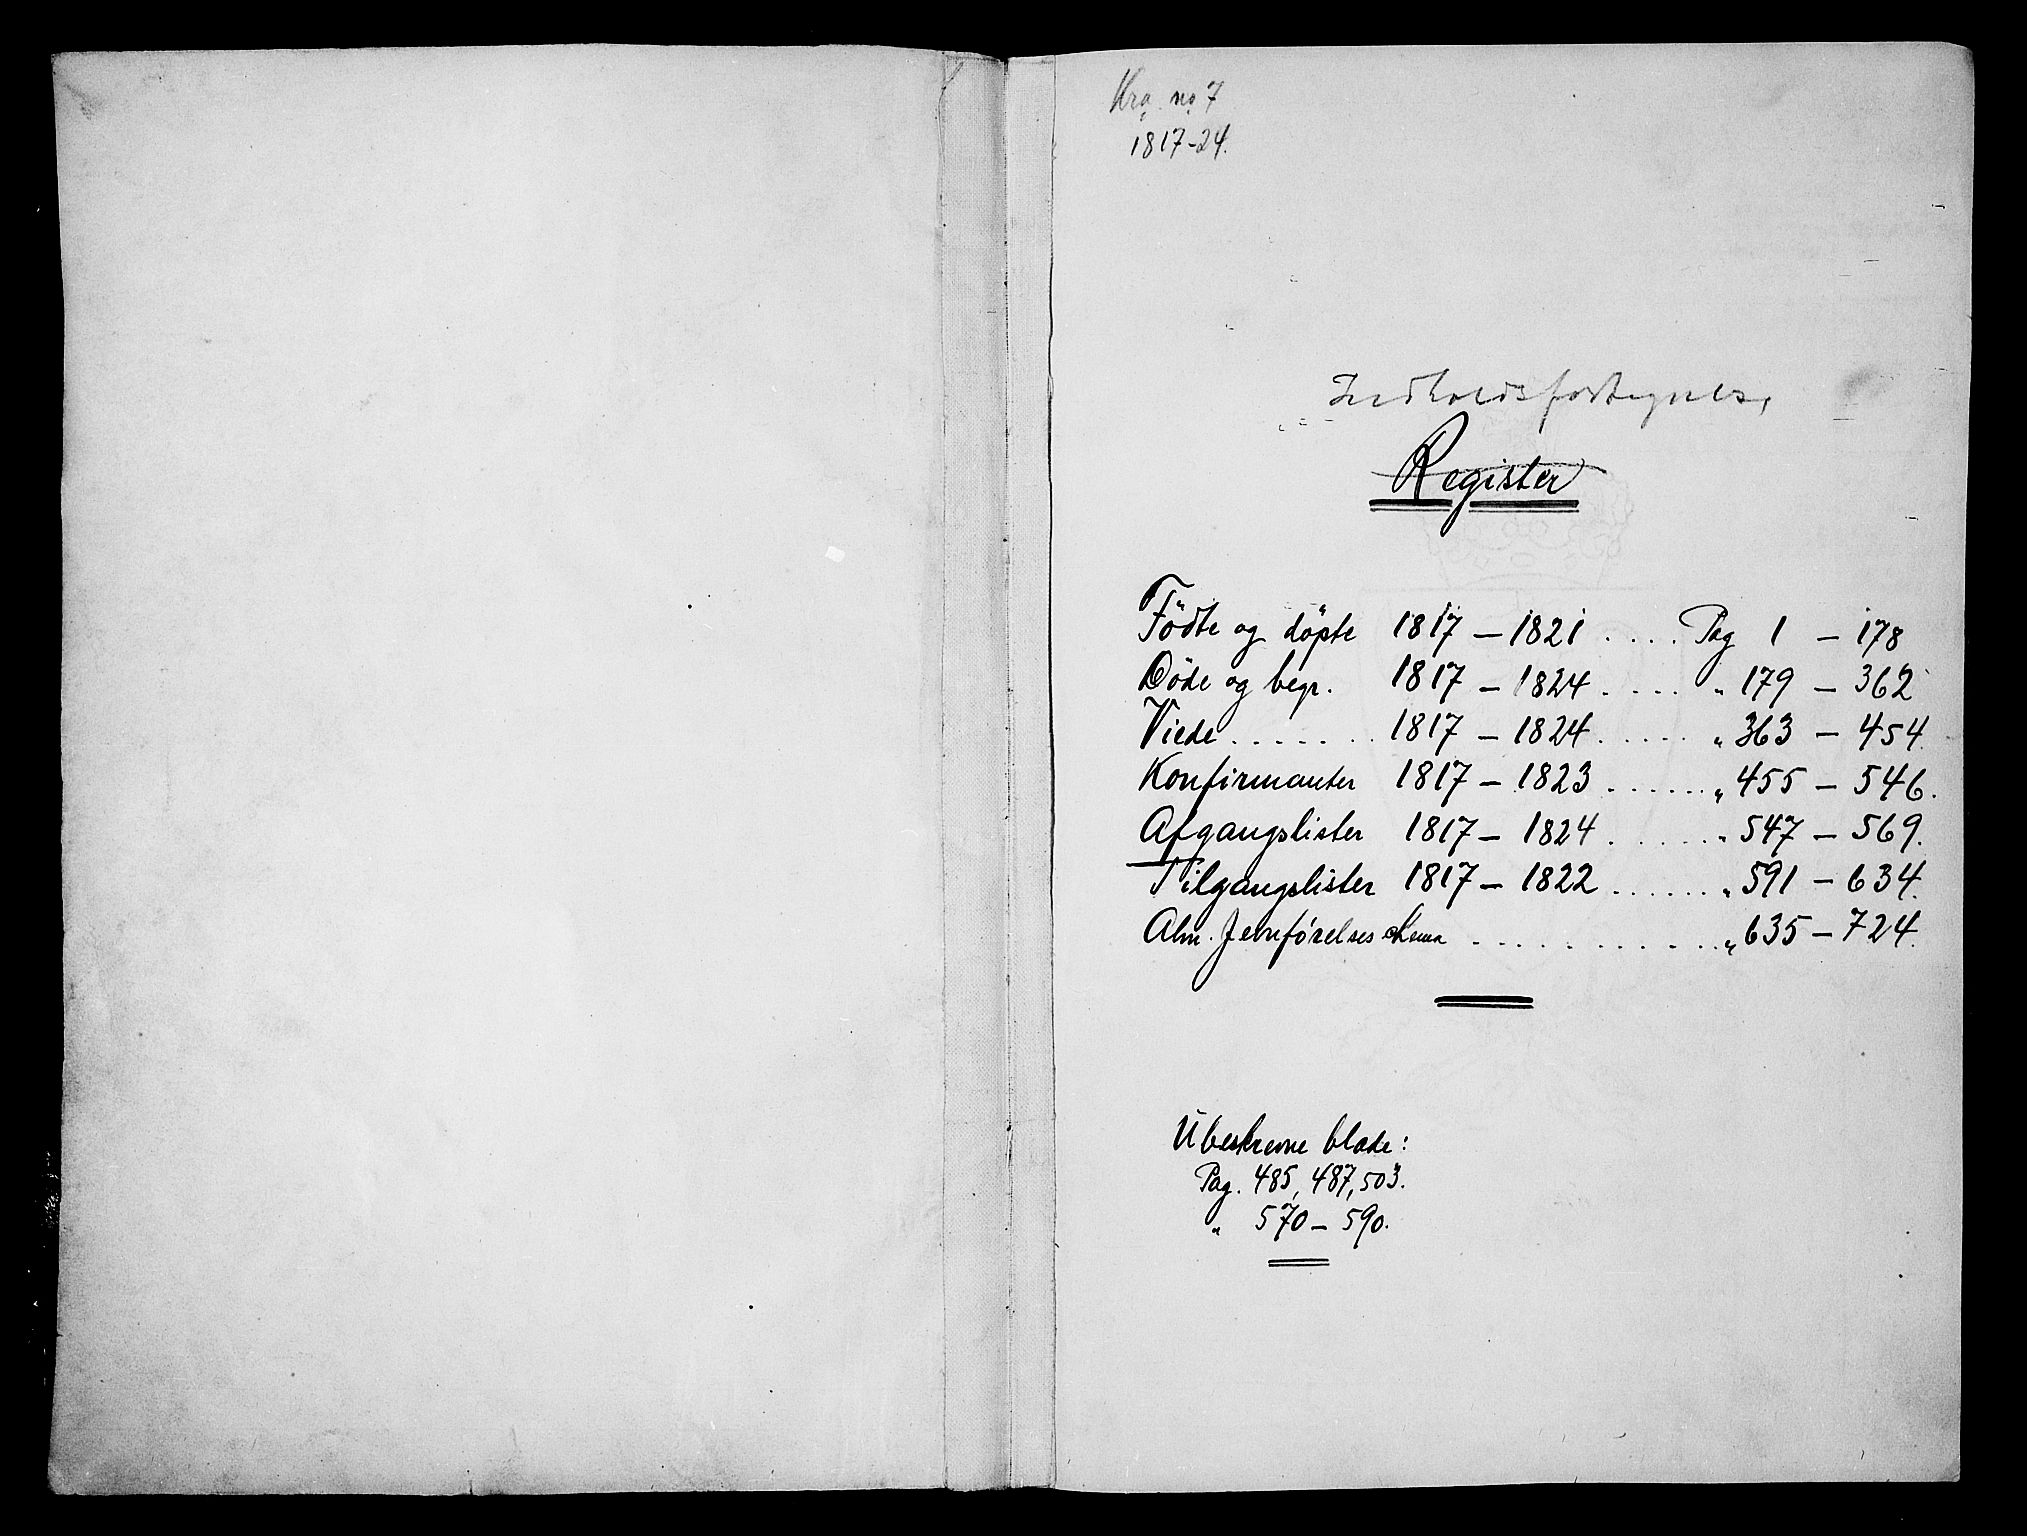 Kra. no 7
1817-24.
Indholdsfortegnelse
Register
Födte og döpte 1817 – 1821 .... Pag 1 – 178
Döde og begr. 1817 – 1824 .... " 179 – 362
Viede ....... 1817 – 1824 ..... " 363 – 454.
Konfirmanter 1817 – 1823 ...... " 455 – 546.
Afgangslister 1817 – 1824 ...... " 547 – 569.
Tilgangslister 1817 – 1822 ...... " 591 – 634.
Alm. Jevnførelses .......... " 635 – 724.
Ubeskrevne blade:
Pag. 485, 487, 503.
" 570 – 590.